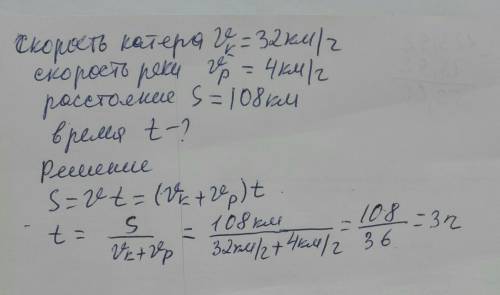 скорость катера Vк = 32 км/ч
скорость реки Vр = 4 км/ч
расстояние S = 108 км
время t - ?
Решение
S = Vt = (Vк + Vр) t
t = S / (Vк + Vр) = 108 км / (32 км/ч + 4 км/ч) = 108 / 36 = 3 ч